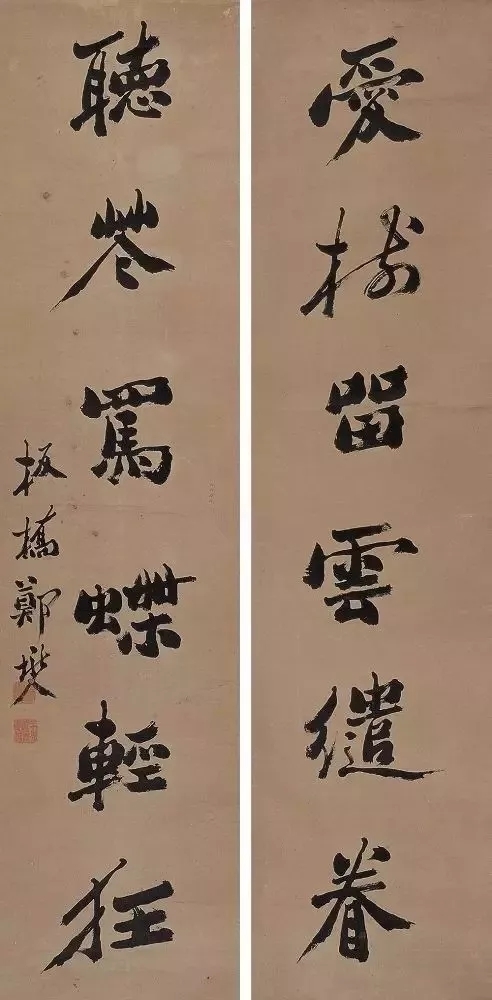 愛樹留雲繾眷
聽花罵蝶輕狂
板橋鄭燮